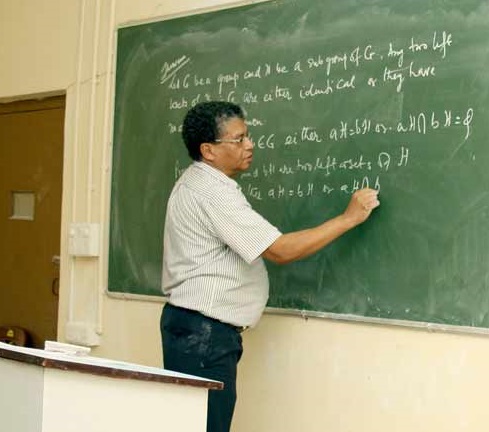 Theorem
Let G be a group and H be a subgroup of G. Any two left
cosets of H in G are either identical or they have
no common
b∈G either aH=bH or aH∩bH={
and bH are two left cosets of H
aH=bH or aH∩b